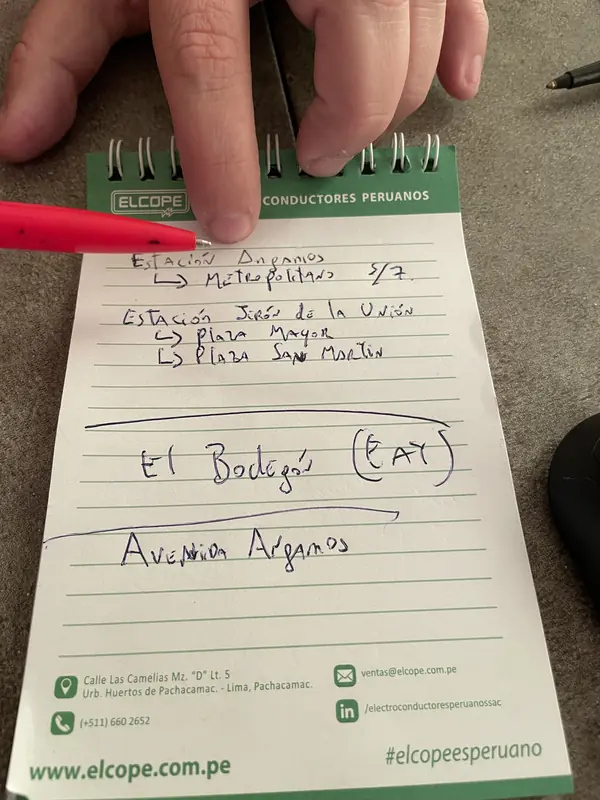 ELCOPE
CONDUCTORES PERUANOS
Estación Angamos
↳ Metropolitano S/7.
Estación Jirón de la Unión
↳ Plaza Mayor
↳ Plaza San Martin
El Bodegón (EAT)
Avenida Angamos
Calle Las Camelias Mz. "D" Lt. 5
Urb. Huertos de Pachacamac. - Lima, Pachacamac.
ventas@elcope.com.pe
(+511) 660 2652
/electroconductoresperuanossac
www.elcope.com.pe
#elcopeesperuano